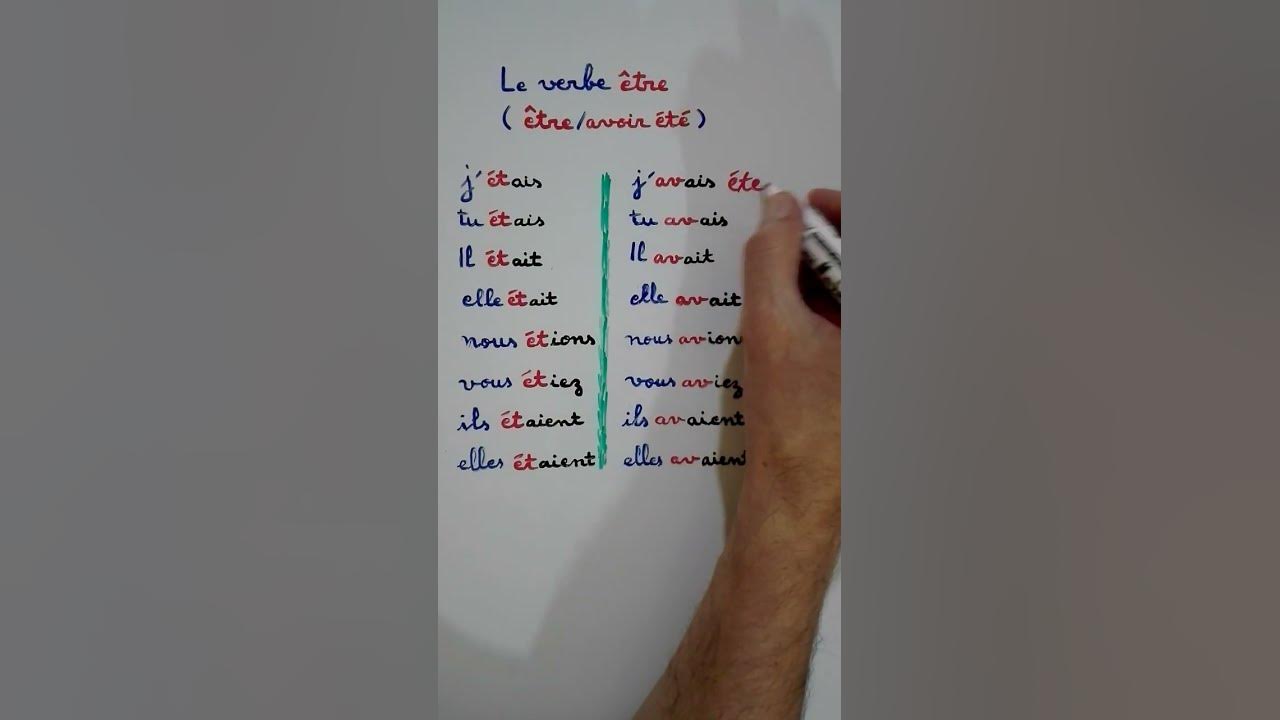 Le verbe être
( être/avoir été )
j'étais
tu étais
Il était
elle était
nous étions
vous étiez
ils étaient
elles étaient
j'avais éte
tu avais
Il avait
elle avait
nous avion
vous aviez
ils avaient
elles avaient